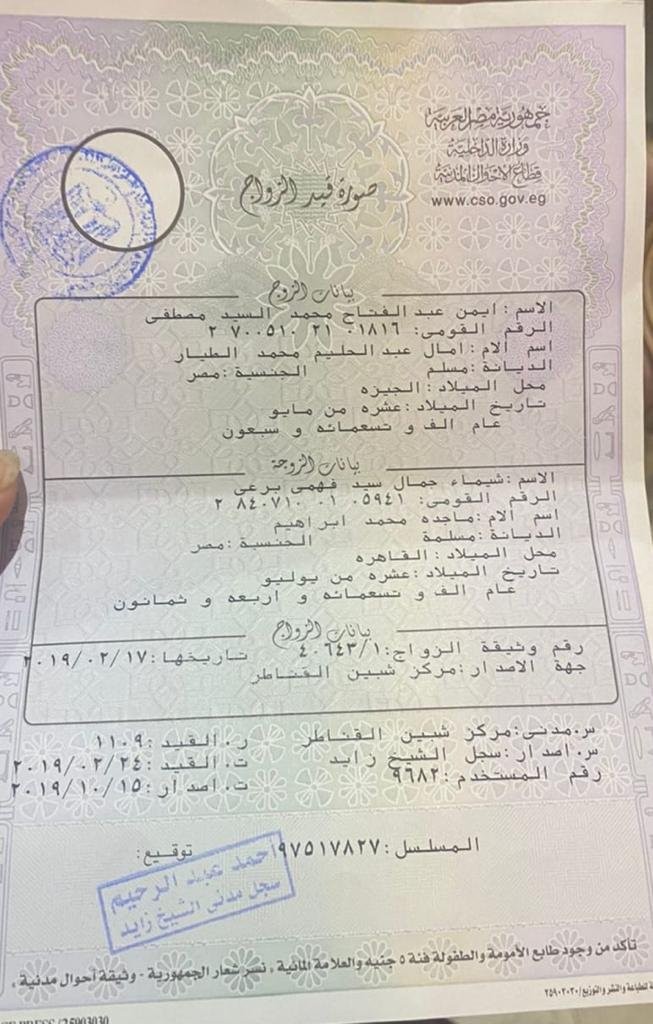 جمهورية مصر العربية
وزارة الداخلية
قطاع الأحوال المدنية
www.cso.gov.eg
صورة قيد الزواج
بيانات الزوج
الاسم : ايمن عبد الفتاح محمد السيد مصطفى
الرقم القومى: ٢٧٠٠٥١٠٢١٠١٨١٦
اسم الام : امال عبد الحليم محمد الطيار
الديانة : مسلم الجنسية : مصر
محل الميلاد : الجيزه
تاريخ الميلاد : عشره من مايو
عام الف و تسعمائه و سبعون
بيانات الزوجة
الاسم : شيماء جمال سيد فهمى برعى
الرقم القومى: ٢٨٤٠٧١٠٠١٠٥٩٤١
اسم الام : ماجده محمد ابراهيم
الديانة : مسلمة الجنسية : مصر
محل الميلاد : القاهره
تاريخ الميلاد : عشره من يوليو
عام الف و تسعمائه و اربعه و ثمانون
بيانات الزواج
رقم وثيقة الزواج: ٤٠٦٤٣/١ تاريخها: ٢٠١٩/٠٢/١٧
جهة الاصدار : مركز شبين القناطر
س.مدنى: مركز شبين القناطر ر.القيد : ١١٠٩
س.اصدار : سجل الشيخ زايد ت.القيد : ٢٠١٩/٠٢/٢٤
رقم المستخدم : ٩٦٨٢ ت.اصدار : ٢٠١٩/١٠/١٥
المسلسل : ٩٧٥١٧٨٢٧ توقيع:
احمد عبد الرحيم
سجل مدنى الشيخ زايد
تأكد من وجود طابع الأمومة والطفولة فئة ٥ جنيه والعلامة المائية ، نسر شعار الجمهورية - وثيقة أحوال مدنية ،
للطباعة والنشر والتوزيع/٢٥٩٠٣٠٣٠
PRESS/25903030